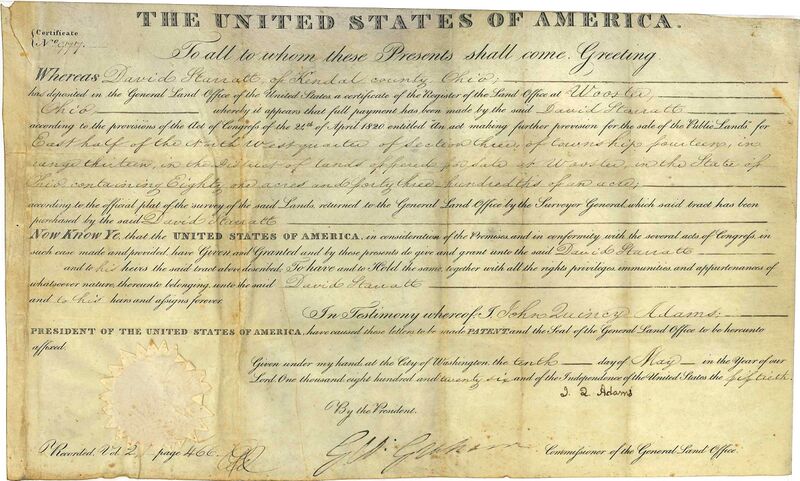 THE UNITED STATES OF AMERICA.
Certificate
No. 
To all to whom these Presents shall come, Greeting
Whereas David Starratt, of Kendal county, Ohio;
has deposited in the General Land Office of the United States a certificate of the Register of the Land Office at Wooster,
Ohio whereby it appears that full payment has been made by the said David Starratt
according to the provisions of the Act of Congress of the 24th of April 1820 entitled An act making further provision for the sale of the Public Lands, for
East half of the North West quarter of Section three, of township fourteen, in
range thirteen, in the District of lands offered for sale at Wooster, in the State of
Ohio containing Eighty one acres and forty three hundredths of an acre;
according to the official plat of the survey of the said Lands, returned to the General Land Office by the Surveyor General, which said tract has been
purchased by the said David Starratt
Now Know Ye, that the UNITED STATES OF AMERICA, in consideration of the Premises, and in conformity with the several acts of Congress, in
such case made and provided, have Given and Granted and by these presents do give and grant unto the said David Starratt
and to his heirs the said tract above described: To have and to Hold the same, together with all the rights privileges, immunities and appurtenances of
whatsoever nature, thereunto belonging, unto the said David Starratt
and to his heirs and assigns forever.
In Testimony whereof, I John Quincy Adams;
PRESIDENT OF THE UNITED STATES OF AMERICA, have caused these letters to be made PATENT, and the Seal of the General Land Office to be hereunto
affixed.
Given under my hand, at the City of Washington, the tenth day of May in the Year of our
Lord, One thousand eight hundred and twenty six and of the Independence of the United States the fiftieth.
J. Q. Adams
By the President.
Recorded, Vol. 2 page 466.
Geo. Graham Commissioner of the General Land Office.